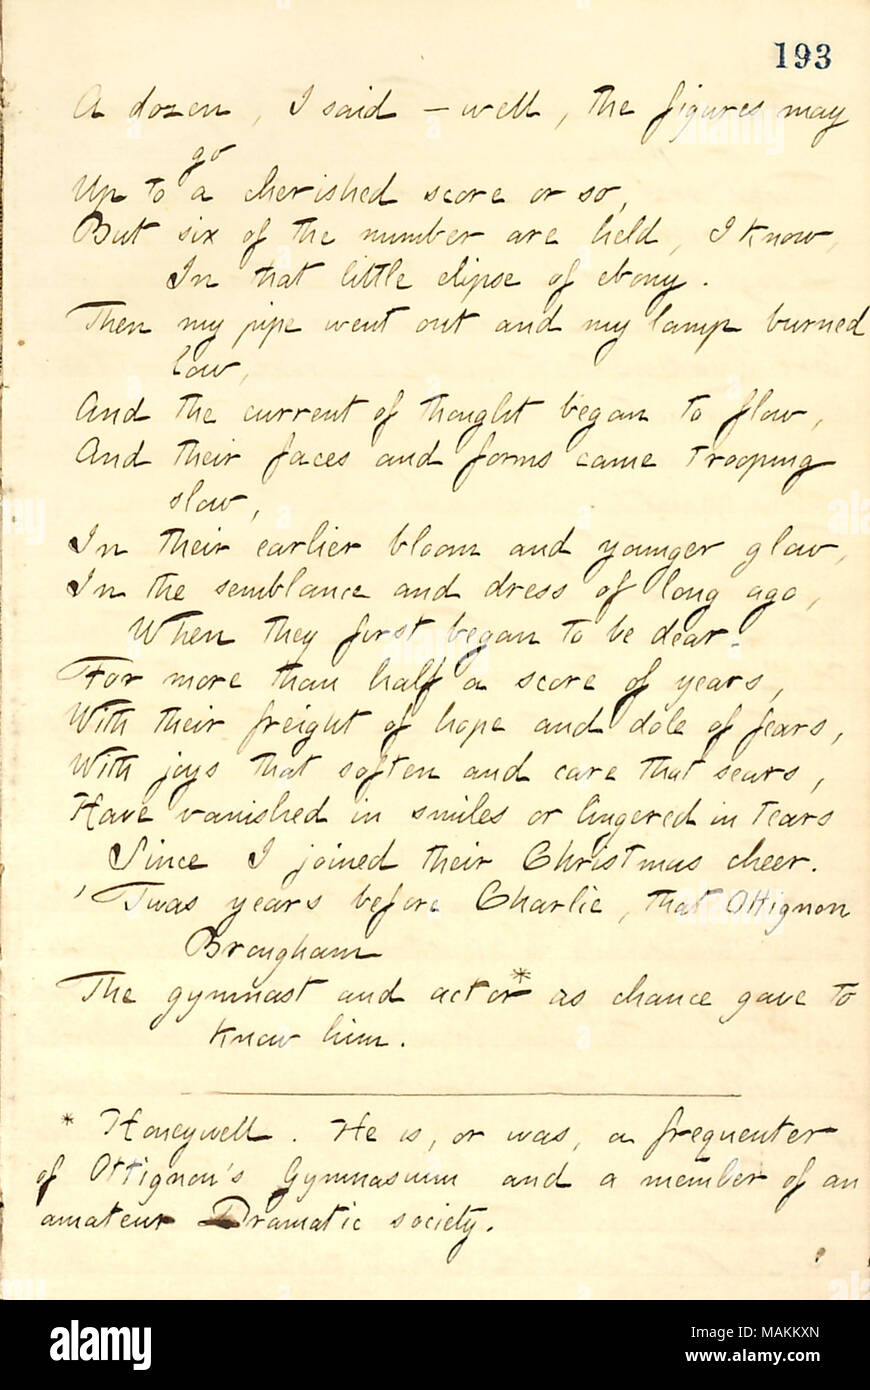 193
A dozen, I said — well, the figures may
go
Up to a cherished score or so,
But six of the number are held, I know,
In that little elipse of ebony.
Then my pipe went out and my lamp burned
low,
And the current of thought began to flow,
And their faces and forms came trooping
slow,
In their earlier bloom and younger glow,
In the semblance and dress of long ago,
When they first began to be dear.
For more than half a score of years,
With their freight of hope and dole of fears,
With joys that soften and care that sears,
Have vanished in smiles or lingered in tears
Since I joined their Christmas cheer.
'Twas years before Charlie, that Ottignon
Brougham
The gymnast and actor* as chance gave to
know him.
* Honeywell. He is, or was, a frequenter
of Ottignon's Gymnasium and a member of an
amateur Dramatic society.
alamy
Image ID: MAKKXN
www.alamy.com